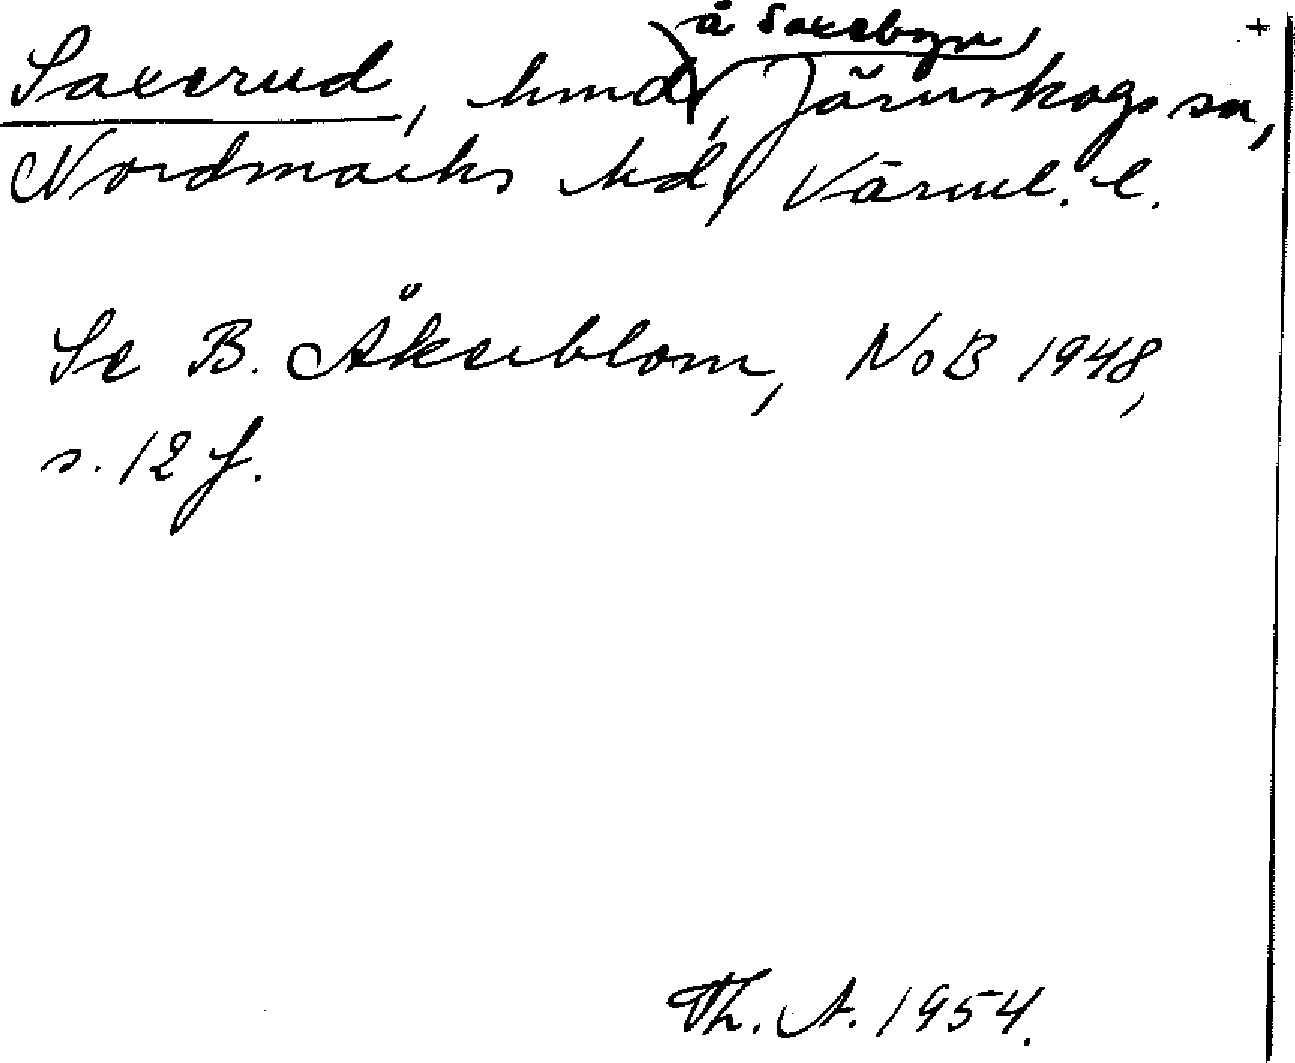 å Saxebyn
Saxerud, hmd, Järnskogs sn, +
Nordmarks hd, Värml. l.
Se B. Åkerblom, NoB 1948,
s. 12 f.
Th. A. 1954.